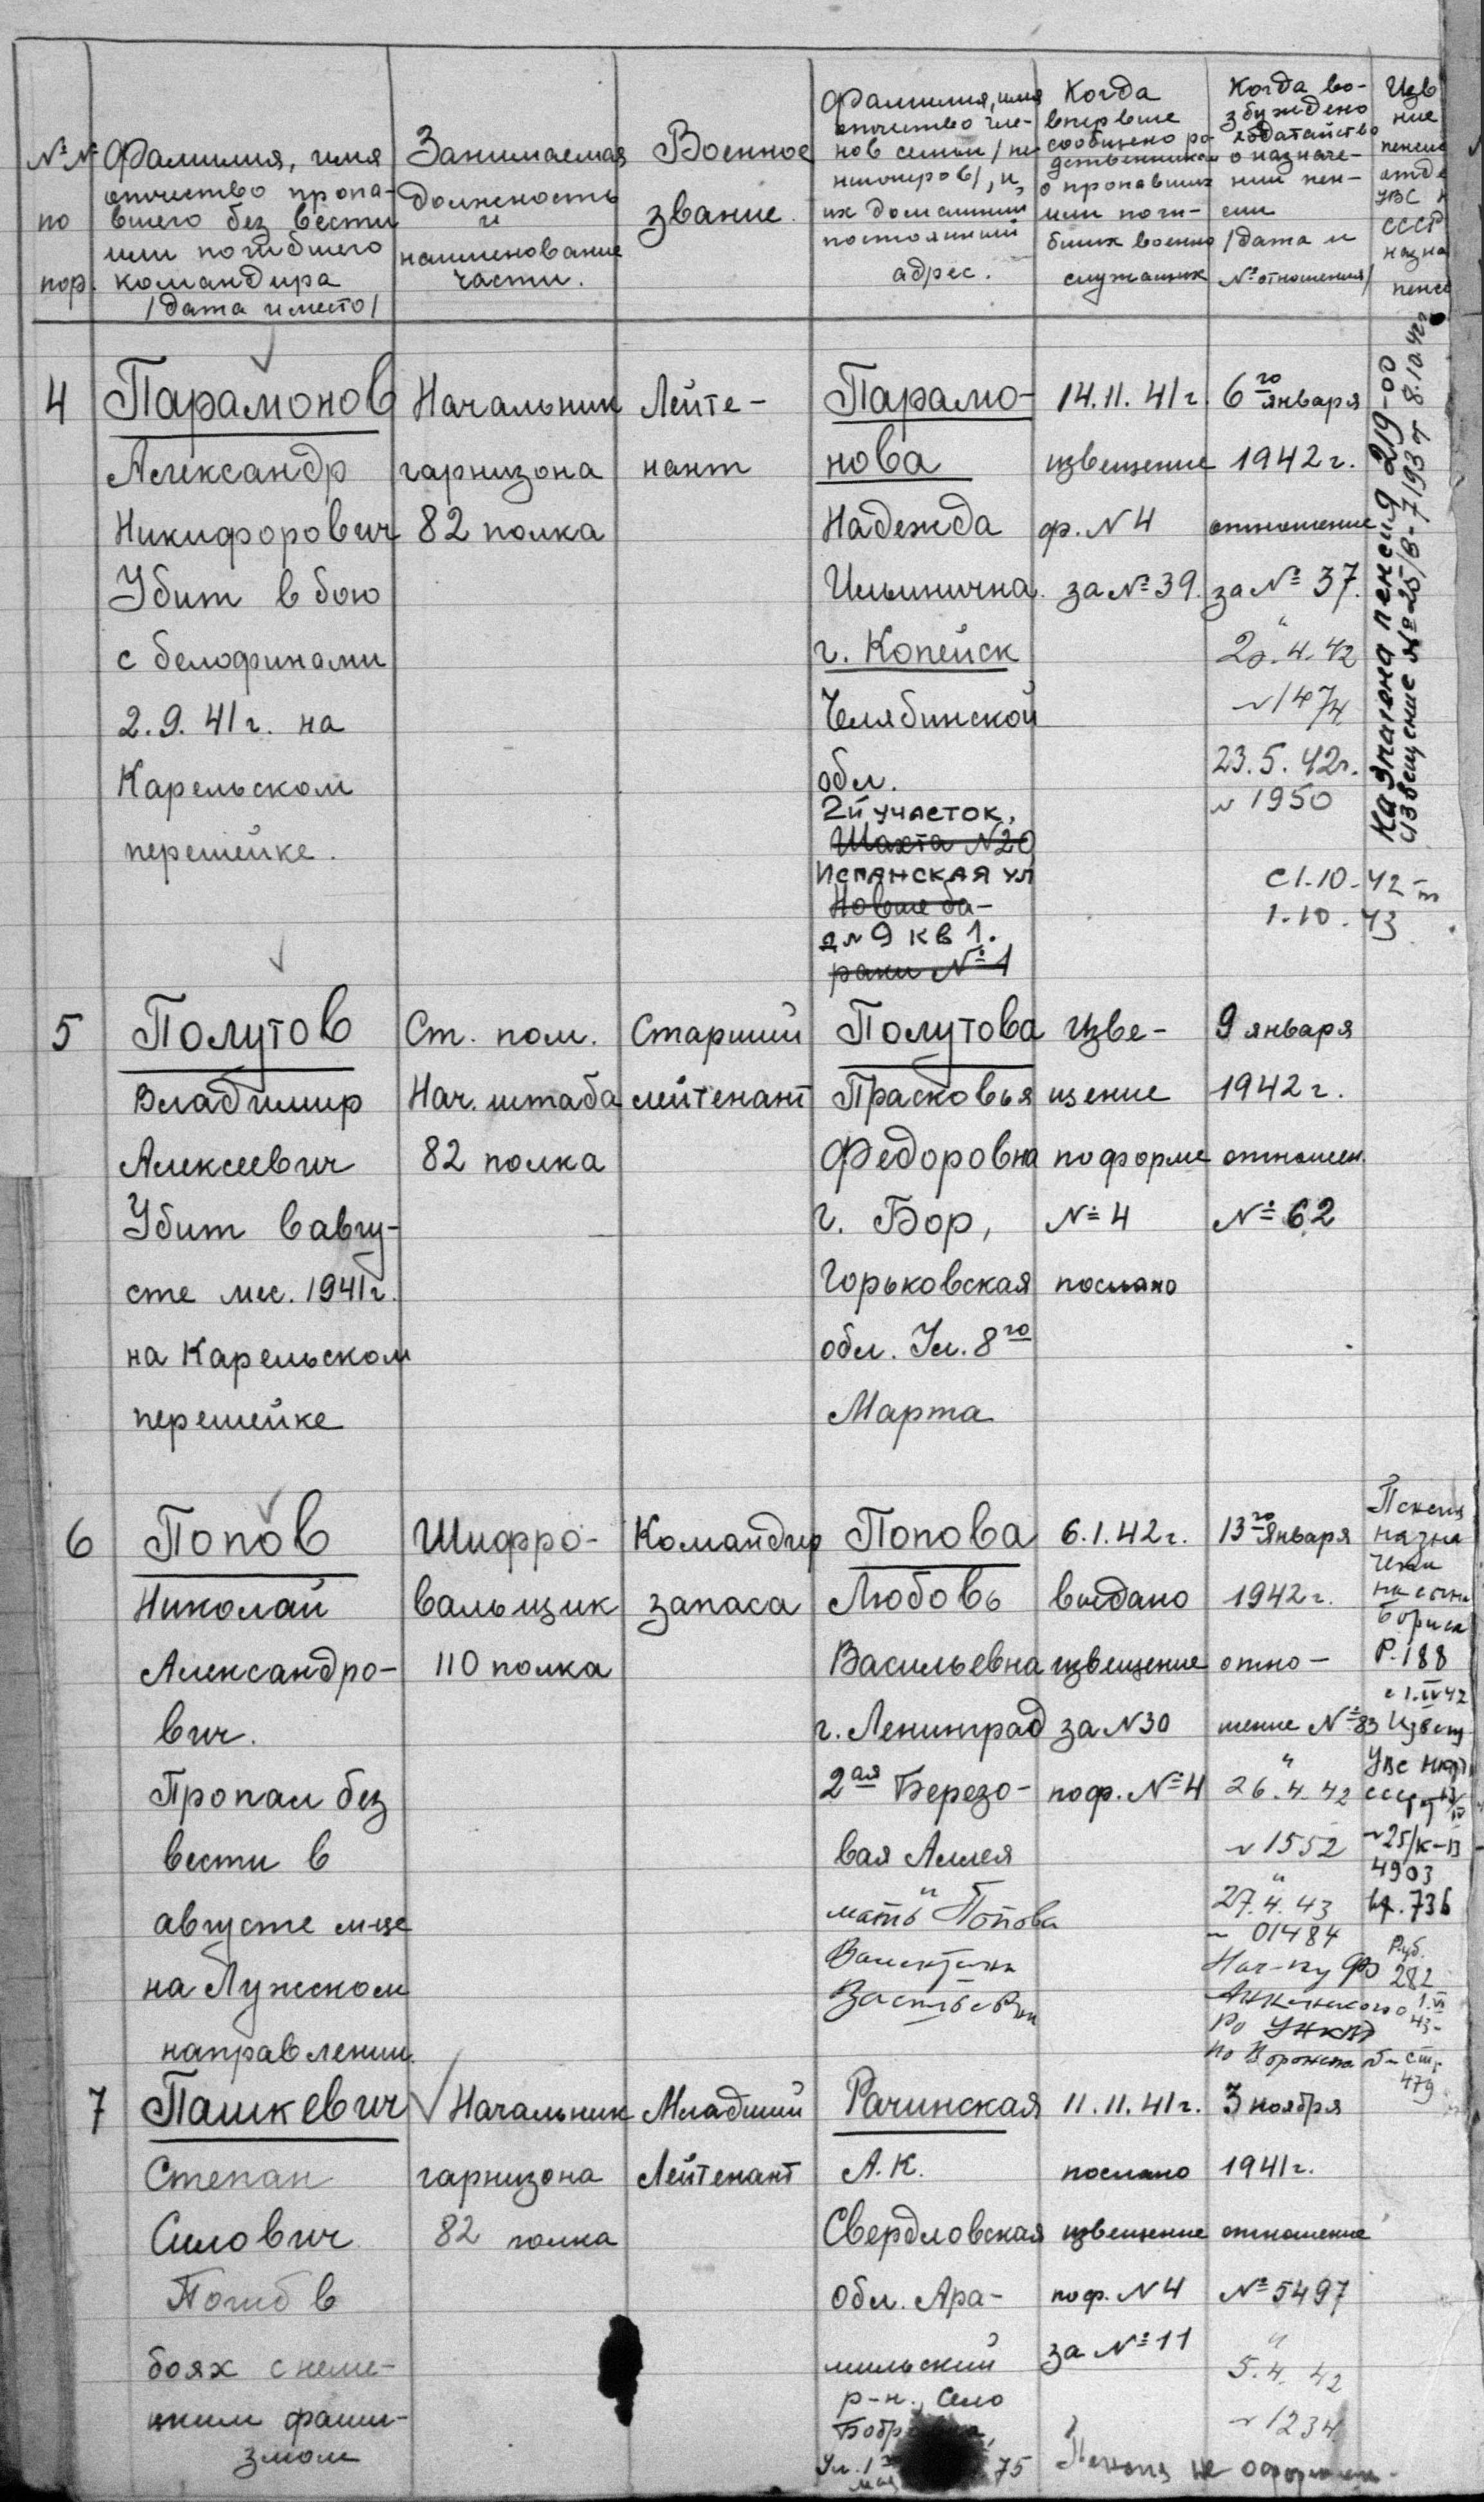 №№
по
пор.
Фамилия, имя
отчество пропа-
вшего без вести
или погибшего
командира
/дата и место/
Занимаемая
должность
и
наименование
части.
Военное
звание.
Фамилия, имя
отчество чле-
нов семьи /пе-
нсионеров/, и
их домашний
постоянный
адрес.
Когда
впервые
сообщено ро-
дственникам
о пропавших
или поги-
бших военно
служащих
Когда во-
збуждено
ходатайство
о назначе-
нии пен-
сии
/дата и
№ отношения/
Изв
ние
пенсио
отде
УВС Н
СССР
назна
пенси
4
Парамонов
Александр
Никифорович
Убит в бою
с белофинами
2.9.41г. на
Карельском
перешейке.
Начальник
гарнизона
82 полка
Лейте-
нант
Парамо-
нова
Надежда
Ильинична
г. Копейск
Челябинской
обл.
2й участок,
Шахта N20
Испанская ул
Новые ба-
д N 9 кв 1.
раки №1
14.11.41г.
извещение
ф. N 4
за №39.
6го января
1942 г.
отношение
за № 37.
4.42
N 1474
23.5.42г.
N 1950
с 1.10-42-
1.10.43
Назначена пенсия 219-00
извещение № 25/в-7193 т 8.10.42г
5
Полутов
Владимир
Алексеевич
Убит в авгу-
сте мес. 1941г.
на Карельском
перешейке
Ст. пом.
Нач. штаба
82 полка
Старший
лейтенант
Полутова
Прасковья
Федоровна
г. Бор,
Горьковская
обл. Ул. 8го
Марта
Изве-
щение
по форме
№ 4
послано
9 января
1942 г.
отношен.
№ 62
6
Попов
Николай
Александро-
вич.
Пропал без
вести в
августе м-це
на Лужском
направлении.
Шифро-
вальщик
110 полка
Командир
запаса
Попова
Любовь
Васильевна
г. Ленинград
2ая Березо-
вая Аллея
мать Попова
6.1.42г.
выдано
извещение
за N30
по ф. №4
13го января
1942 г.
отно-
шение №83
26.4.42
N 1552
27.4.43
01484
Нач-ку ФО
РО УНКВД
Пенсия
назна
чена
на сына
Бориса
Р.188
с 1.IV 42
Извещ
УВС НКВД
СССР
N 25/к-13
4903
Руб.
282
1.VI
43-
479
7
Пашкевич
Степан
Силович
Погиб в
боях с неме-
цким фаши-
змом
Начальник
гарнизона
82 полка
Младший
Лейтенант
Рачинская
А.К.
Свердловская
обл. Ара-
мильский
р-н., Село
Ул. 1
75
11.11.41г.
послано
извещение
по ф. N 4
за №11
3 ноября
1941г.
отношение
№ 5497
5.4.42
N 1234
Пенсия не оформлен